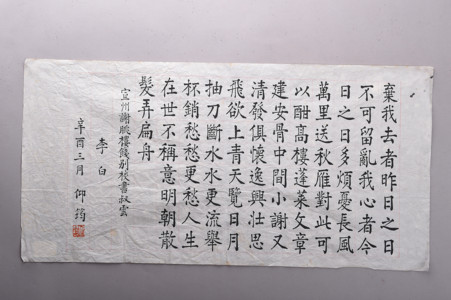 棄我去者昨日之日
不可留亂我心者今
日之日多煩憂長風
萬里送秋雁對此可
以酣高樓蓬萊文章
建安骨中間小謝又
清發俱懷逸興壯思
飛欲上青天覽日月
抽刀斷水水更流舉
杯銷愁愁更愁人生
在世不稱意明朝散
髮弄扁舟
宣州謝朓樓餞別校書叔雲
李白
辛酉三月 仰